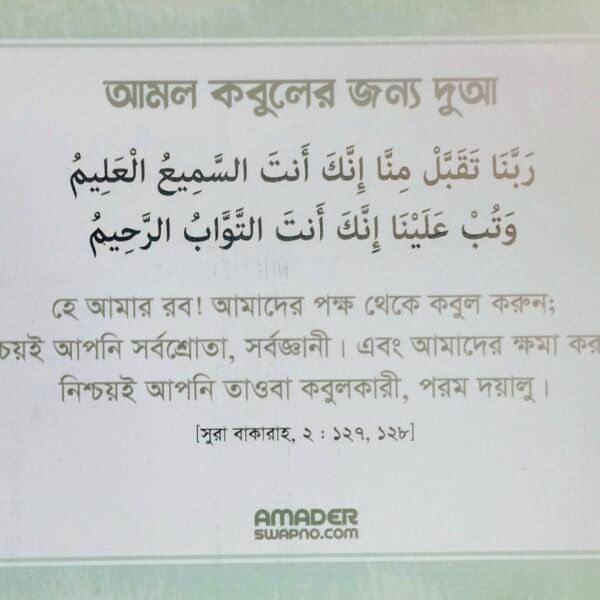 আমল কবুলের জন্য দুআ
رَبَّنَا تَقَبَّلْ مِنَّا إِنَّكَ أَنتَ السَّمِيعُ الْعَلِيمُ
وَتُبْ عَلَيْنَا إِنَّكَ أَنتَ التَّوَّابُ الرَّحِيمُ
হে আমার রব! আমাদের পক্ষ থেকে কবুল করুন;
চয়ই আপনি সর্বশ্রোতা, সর্বজ্ঞানী। এবং আমাদের ক্ষমা কর
নিশ্চয়ই আপনি তাওবা কবুলকারী, পরম দয়ালু।
[সুরা বাকারাহ, ২ : ১২৭, ১২৮]
AMADER
SWAPNO.COM